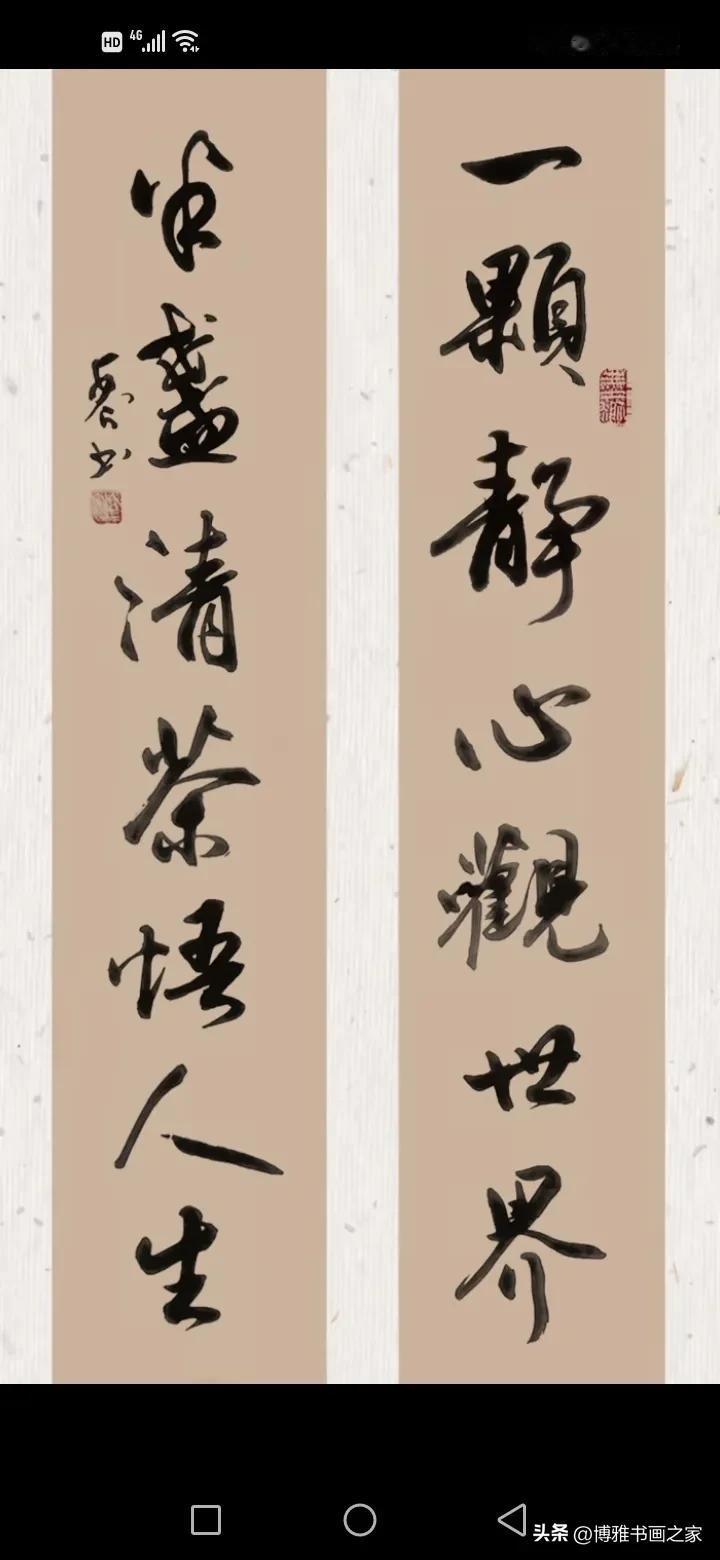 HD 4G
一顆靜心觀世界
半盞清茶悟人生
头条 @博雅书画之家